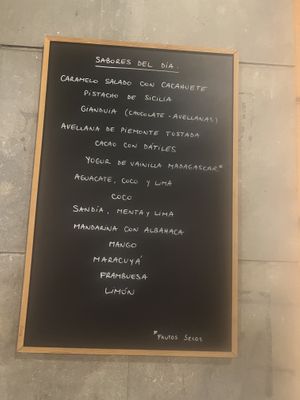 SABORES DEL DÍA.
CARAMELO SALADO CON CACAHUETE
PISTACHO DE SICILIA
GIANDUIA (CHOCOLATE - AVELLANAS)
AVELLANA DE PIEMONTE TOSTADA
CACAO CON DÁTILES
YOGUR DE VAINILLA MADAGASCAR*
AGUACATE, COCO Y LIMA
COCO
SANDÍA, MENTA Y LIMA
MANDARINA CON ALBAHACA
MANGO
MARACUYÁ
FRAMBUESA
LIMÓN
*FRUTOS SECOS